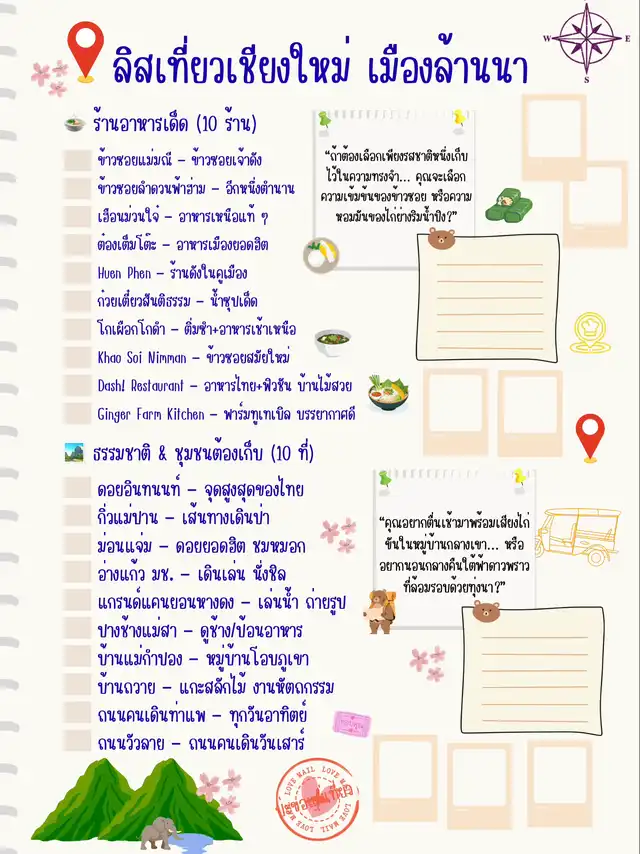 N
W E
S
ลิสเที่ยวเชียงใหม่ เมืองล้านนา
ร้านอาหารเด็ด (10 ร้าน)
ข้าวซอยแม่มณี – ข้าวซอยเจ้าดัง
ข้าวซอยลำดวนฟ้าฮ่าม – อีกหนึ่งตำนาน
เฮือนม่วนใจ๋ – อาหารเหนือแท้ ๆ
ต๋องเต็มโต๊ะ – อาหารเมืองยอดฮิต
Huen Phen – ร้านดังในคูเมือง
ก๋วยเตี๋ยวสันติธรรม – น้ำซุปเด็ด
โกเผือกโกดำ – ติ่มซำ+อาหารเช้าเหนือ
Khao Soi Nimman – ข้าวซอยสมัยใหม่
Dash! Restaurant – อาหารไทย+ฟิวชัน บ้านไม้สวย
Ginger Farm Kitchen – ฟาร์มทูเทเบิล บรรยากาศดี
“ถ้าต้องเลือกเพียงรสชาติหนึ่งเก็บ
ไว้ในความทรงจำ... คุณจะเลือก
ความเข้มข้นของข้าวซอย หรือความ
หอมมันของไก่ย่างริมน้ำปิง?”
ธรรมชาติ & ชุมชนต้องเก็บ (10 ที่)
ดอยอินทนนท์ – จุดสูงสุดของไทย
กิ่วแม่ปาน – เส้นทางเดินป่า
ม่อนแจ่ม – ดอยยอดฮิต ชมหมอก
อ่างแก้ว มช. – เดินเล่น นั่งชิล
แกรนด์แคนยอนหางดง – เล่นน้ำ ถ่ายรูป
ปางช้างแม่สา – ดูช้าง/ป้อนอาหาร
บ้านแม่กำปอง – หมู่บ้านโอบภูเขา
บ้านถวาย – แกะสลักไม้ งานหัตถกรรม
ถนนคนเดินท่าแพ – ทุกวันอาทิตย์
ถนนวัวลาย – ถนนคนเดินวันเสาร์
“คุณอยากตื่นเช้ามาพร้อมเสียงไก่
ขันในหมู่บ้านกลางเขา... หรือ
อยากนอนกลางคืนใต้ฟ้าดาวพราว
ที่ล้อมรอบด้วยทุ่งนา?”
LOVE MAIL LOVE MAIL LOVE MAIL LOVE MAIL